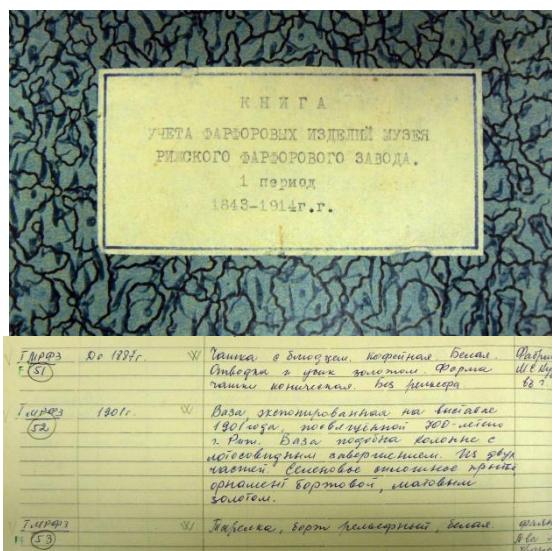 КНИГА
УЧЕТА ФАРФОРОВЫХ ИЗДЕЛИЙ МУЗЕЯ
РИЖСКОГО ФАРФОРОВОГО ЗАВОДА.
1 период
1843-1914г.г.
I МРФЗ До 1887г. W Чашка с блюдцем. Кофейная. Белая.
51 Отводка и усик золотом. Форма М.С.Ку
чашки коническая. Без рельефа
I МРФЗ 1901г. W Ваза экспонированная на выставке
52 1901 года, посвящённой 700-летию
г. Риги. Ваза подобна колонне с
лотосовидным завершением. Из двух
частей. Селеновое сплошное
орнамент бортовой, матовым
золотом.
I МРФЗ W Тарелка, борт рельефный, белая.
53